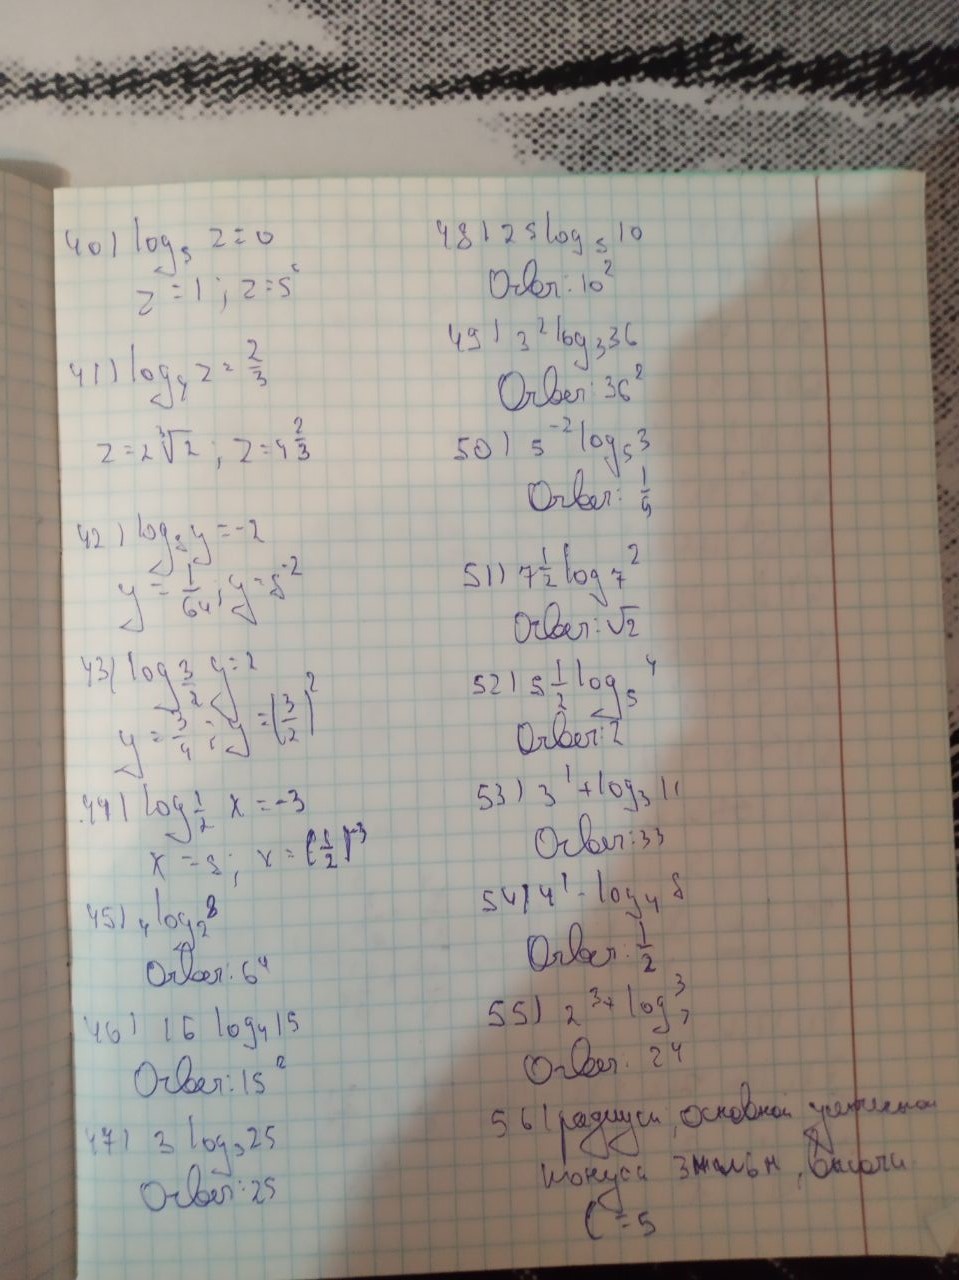 40) log₅ z = 0
z = 1 ; z = 5⁰
41) log₄ z = 2/3
z = 2∛2 ; z = 4^(2/3)
42) log₈ y = -2
y = 1/64 ; y = 8⁻²
43) log 3/2 y = 2
y = 3/4 ; y = (3/2)²
44) log 1/2 x = -3
x = 8 ; x = (1/2)⁻³
45) 4 log₂ 8
Ответ: 64
46) 16 log₄ 15
Ответ: 15²
47) 3 log₃ 25
Ответ: 25
48) 25 log₅ 10
Ответ: 10²
49) 3² log₃ 36
Ответ: 36²
50) 5⁻² log₅ 3
Ответ: 1/9
51) 7 1/2 log₇ 2
Ответ: √2
52) 5 1/2 log₅ 4
Ответ: 2
53) 3¹ + log₃ 11
Ответ: 33
54) 4¹ - log₄ 8
Ответ: 1/2
55) 2³⁺ log₂ 3
Ответ: 24
56) радиусы, основной
конуса
= 5